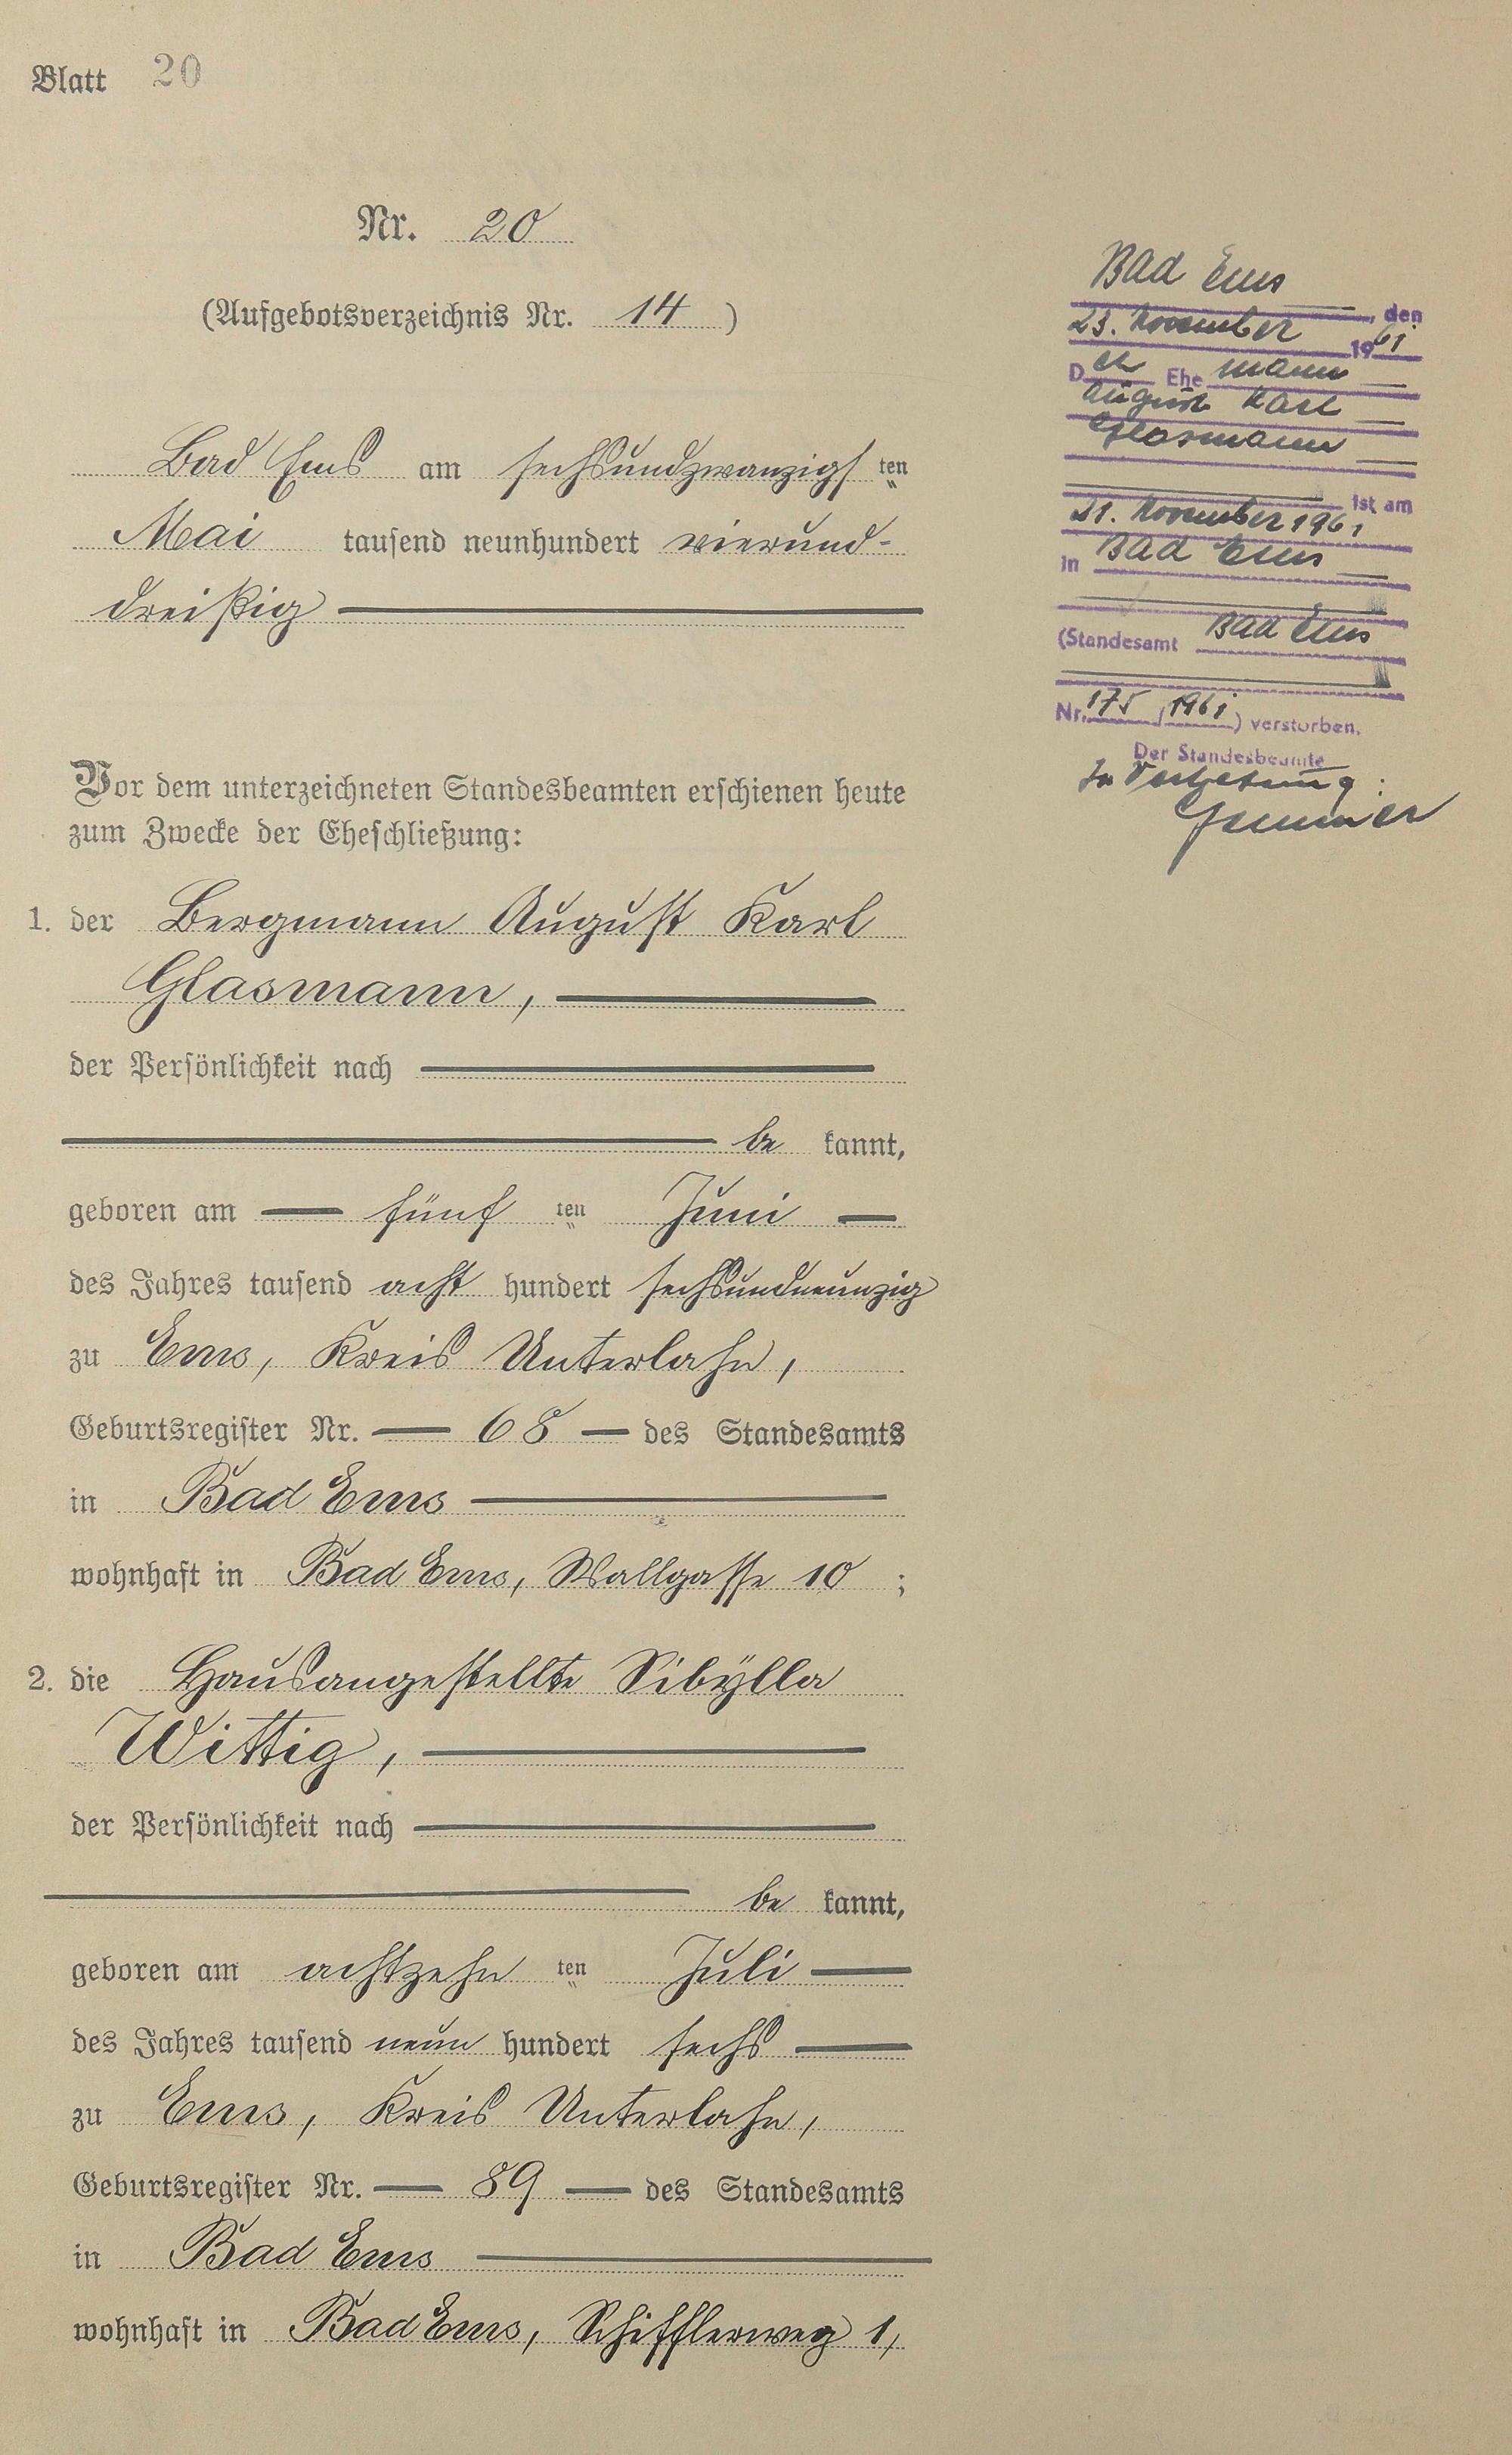 Blatt 20
Nr. 20
(Aufgebotsverzeichnis Nr. 14)
Bad Ems am sechsundzwanzigsten
Mai tausend neunhundert vierund-
dreißig
Vor dem unterzeichneten Standesbeamten erschienen heute
zum Zwecke der Eheschließung:
1. der Bergmann August Karl
Glasmann,
der Persönlichkeit nach
be kannt,
geboren am fünf ten Juni
des Jahres tausend acht hundert sechsundneunzig
zu Ems, Kreis Unterlahn,
Geburtsregister Nr. 68 des Standesamts
in Bad Ems
wohnhaft in Bad Ems, Wallgasse 10;
2. die Hausangestellte Sibylla
Wittig,
der Persönlichkeit nach
be kannt,
geboren am achtzehn ten Juli
des Jahres tausend neun hundert sechs
zu Ems, Kreis Unterlahn,
Geburtsregister Nr. 89 des Standesamts
in Bad Ems
wohnhaft in Bad Ems, Schifflerweg 1,
Bad Ems, den
23. November 1961
Der Ehemann
August Karl
Glasmann
ist am
21. November 1961
in Bad Ems
(Standesamt Bad Ems
Nr. 175/1961) verstorben.
Der Standesbeamte
In Vertretung: